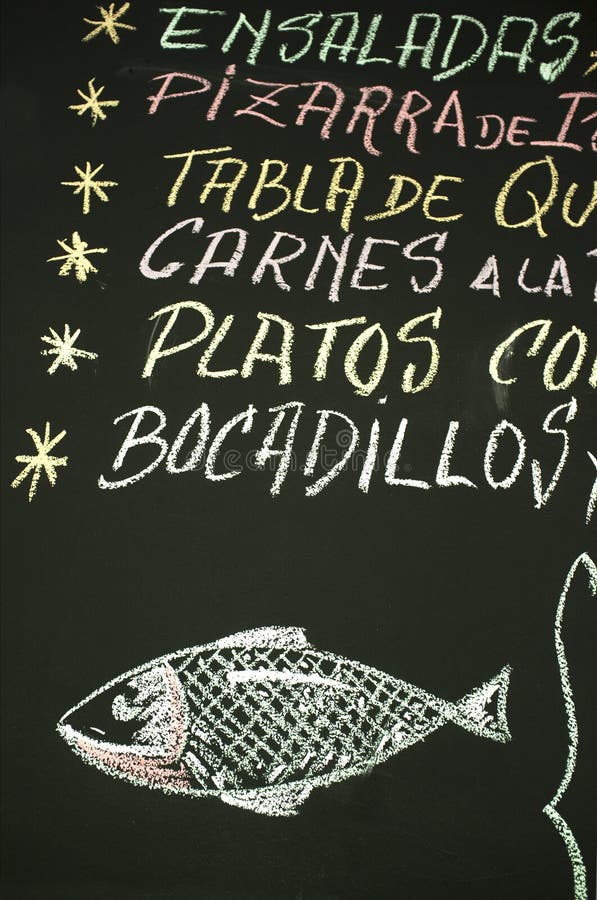 * ENSALADAS
* PIZARRA DE I
* TABLA DE QU
* CARNES A LA
* PLATOS CO
* BOCADILLOS